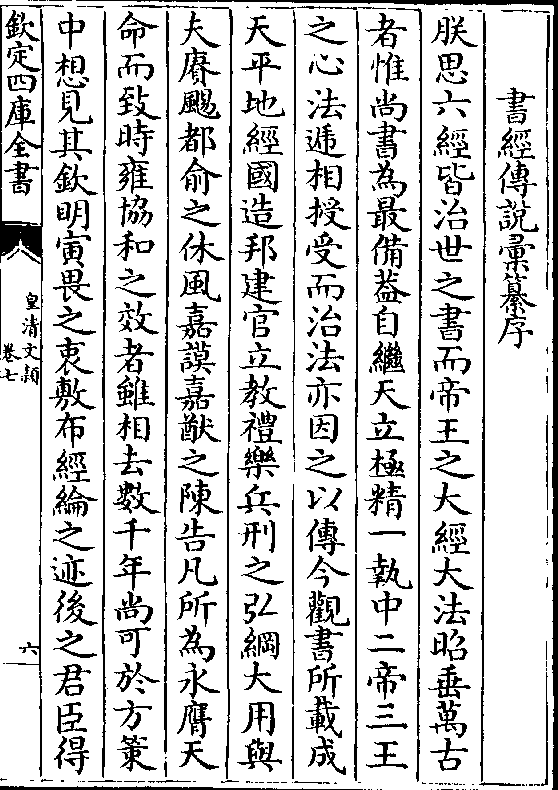 書經傳説彚纂序
朕思六經皆治世之書而帝王之大經大法昭垂萬古
者惟尚書為最備葢自繼天立極精一執中二帝三王
之心法遞相授受而治法亦因之以傳今觀書所載成
天平地經國造邦建官立教禮樂兵刑之弘綱大用與
夫賡颺都俞之休風嘉謨嘉猷之陳告凡所為永膺天
命而致時雍協和之效者雖相去數千年尚可於方策
中想見其欽明寅畏之衷敷布經綸之迹後之君臣得
欽定四庫全書
皇清文頴
卷七
六